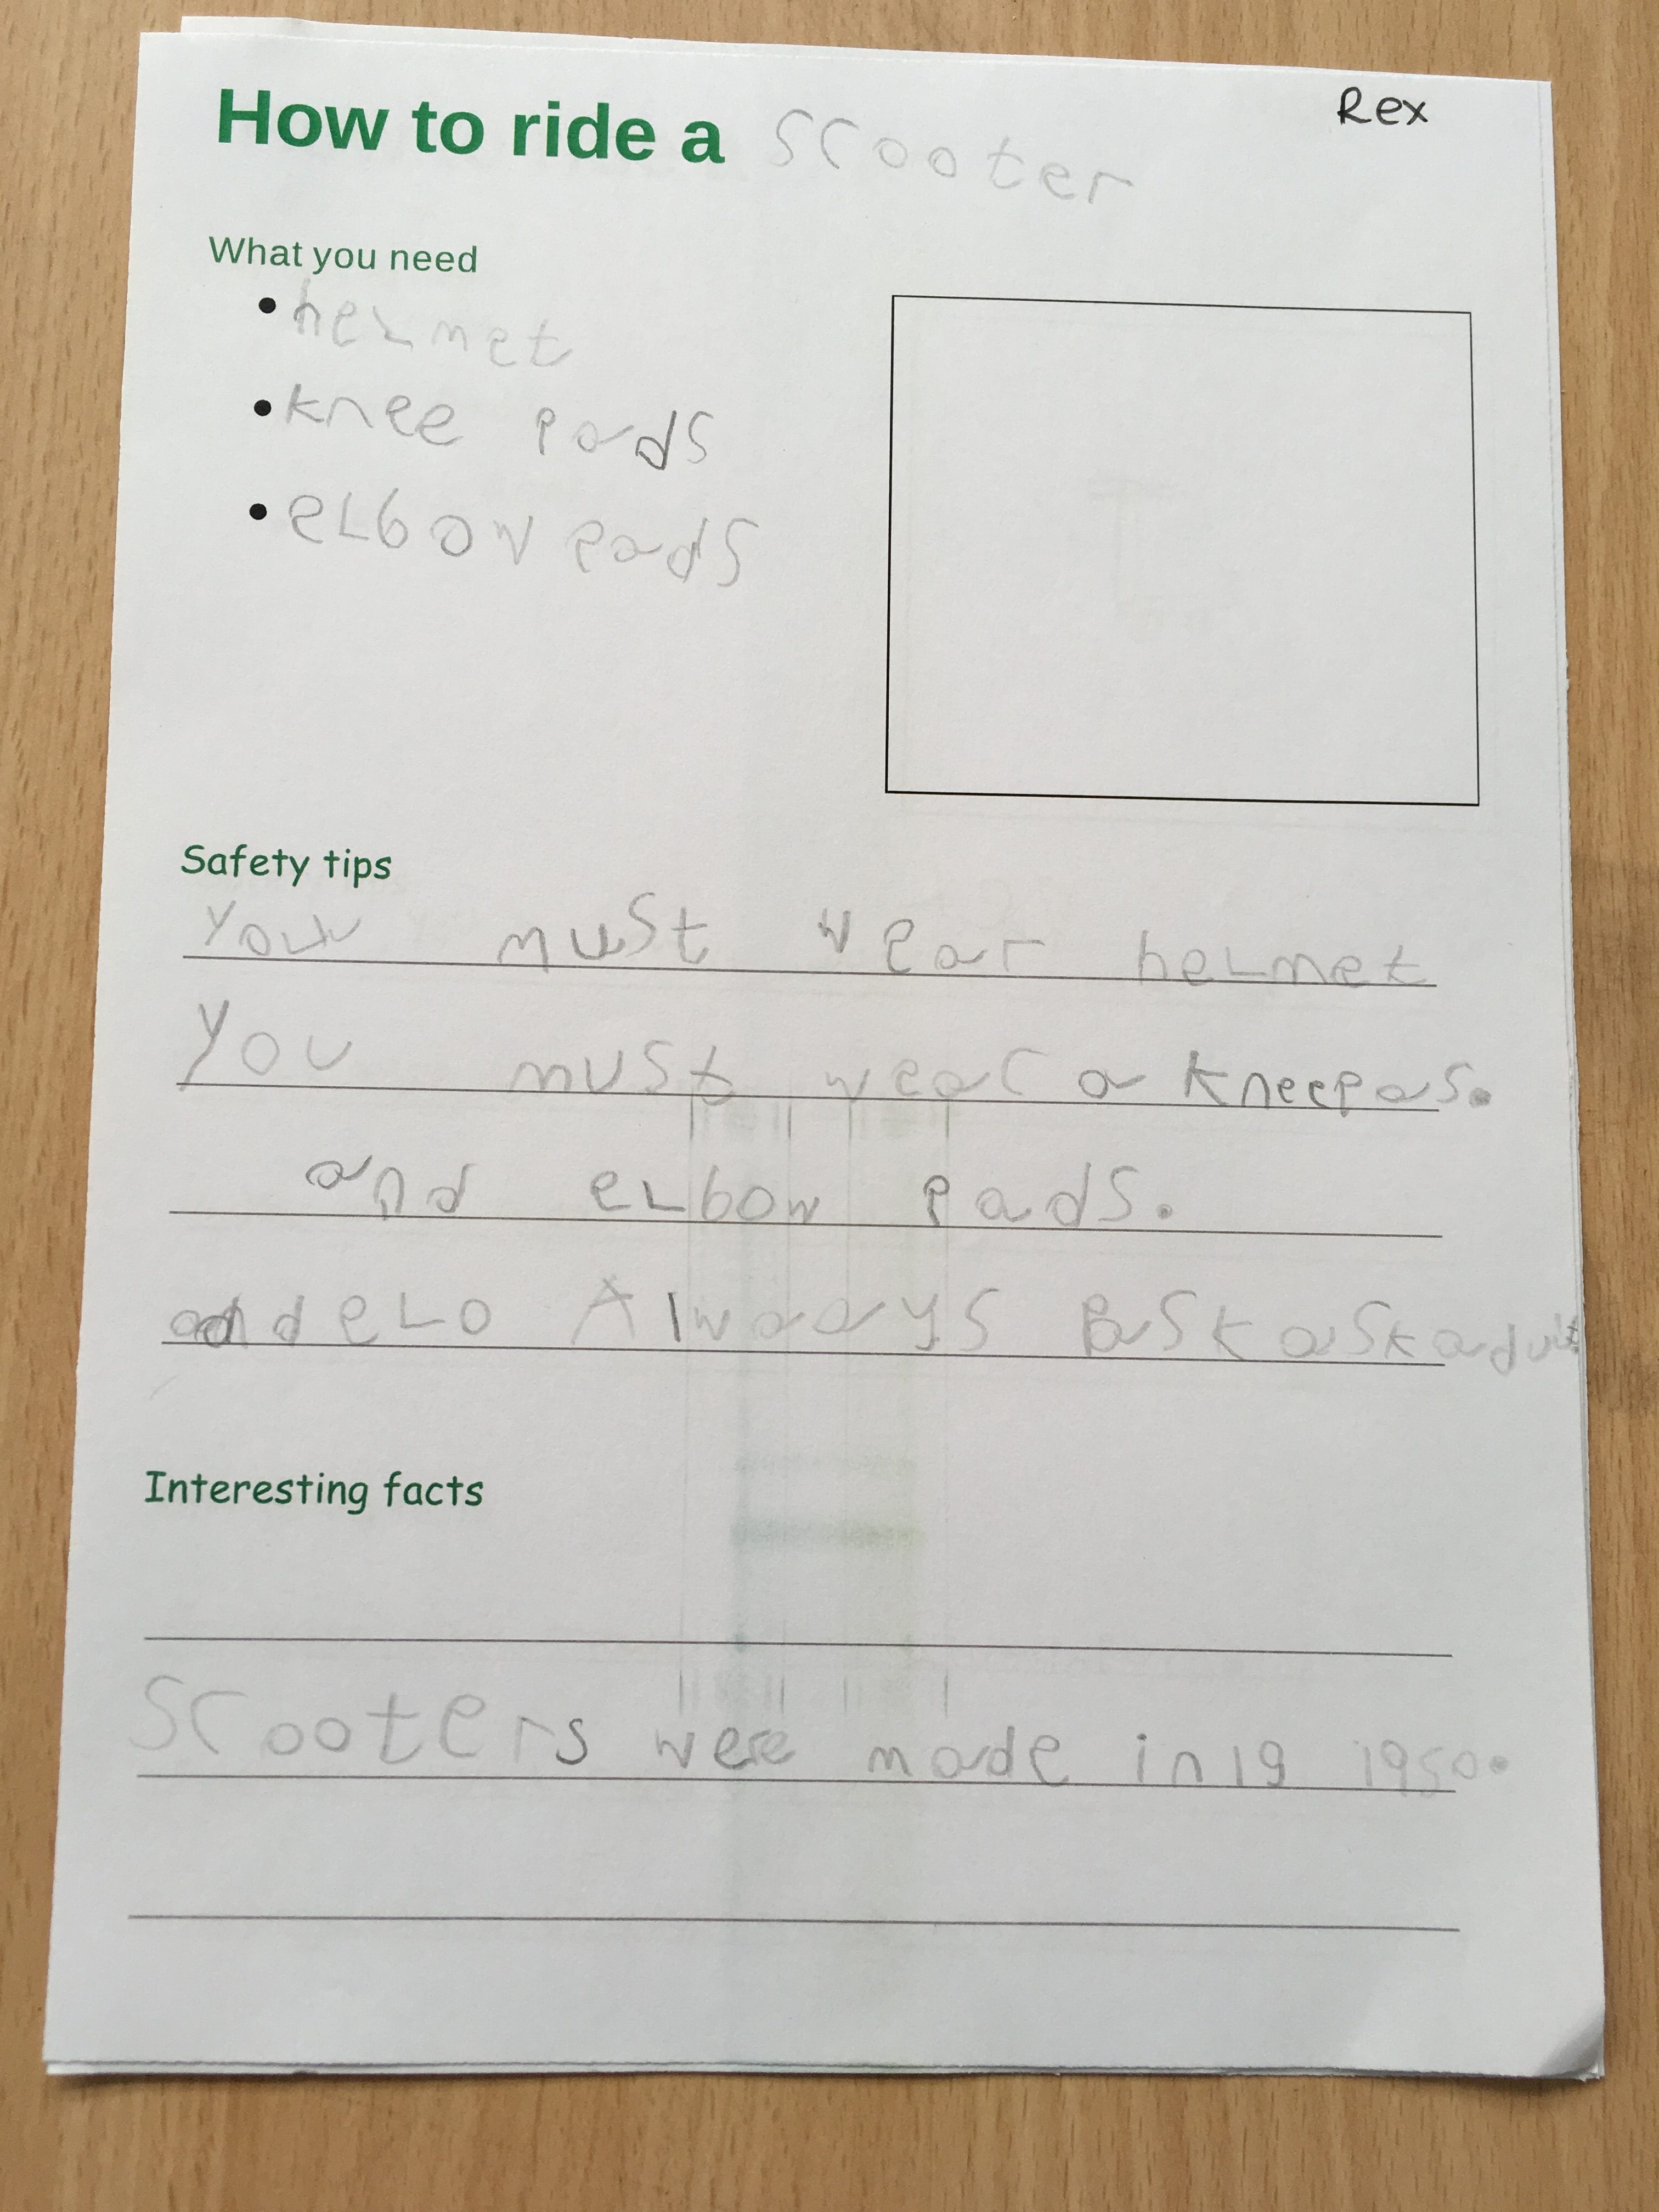 How to ride a scooter
Rex
What you need
• helmet
• knee pads
• elbow pads
Safety tips
You must wear helmet
You must wear a kneepas.
and elbow pads.
andelo Always ask ask adult
Interesting facts
Scooters were made in 19 1950.